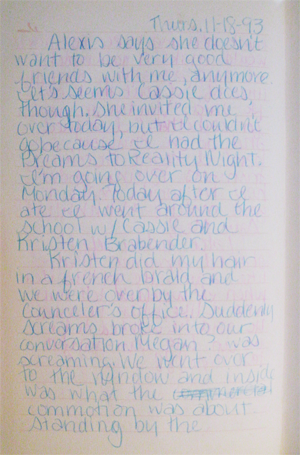 Thurs. 11-18-93
Alexis says she doesn't
want to be very good
friends with me, anymore.
It's seems Cassie dies,
though. She invited me
over today, but I couldn't
go because I had the
Dreams to Reality Night.
I'm going over on
Monday. Today after I
ate I went around the
school w/ Cassie and
Kristen Brabender.
Kristen did my hair
in a french braid and
we were over by the
Counceler's office. Suddenly
screams broke into our
conversation. Megan was
screaming. We went over
to the window and inside
was what the
commotion was about.
Standing by the